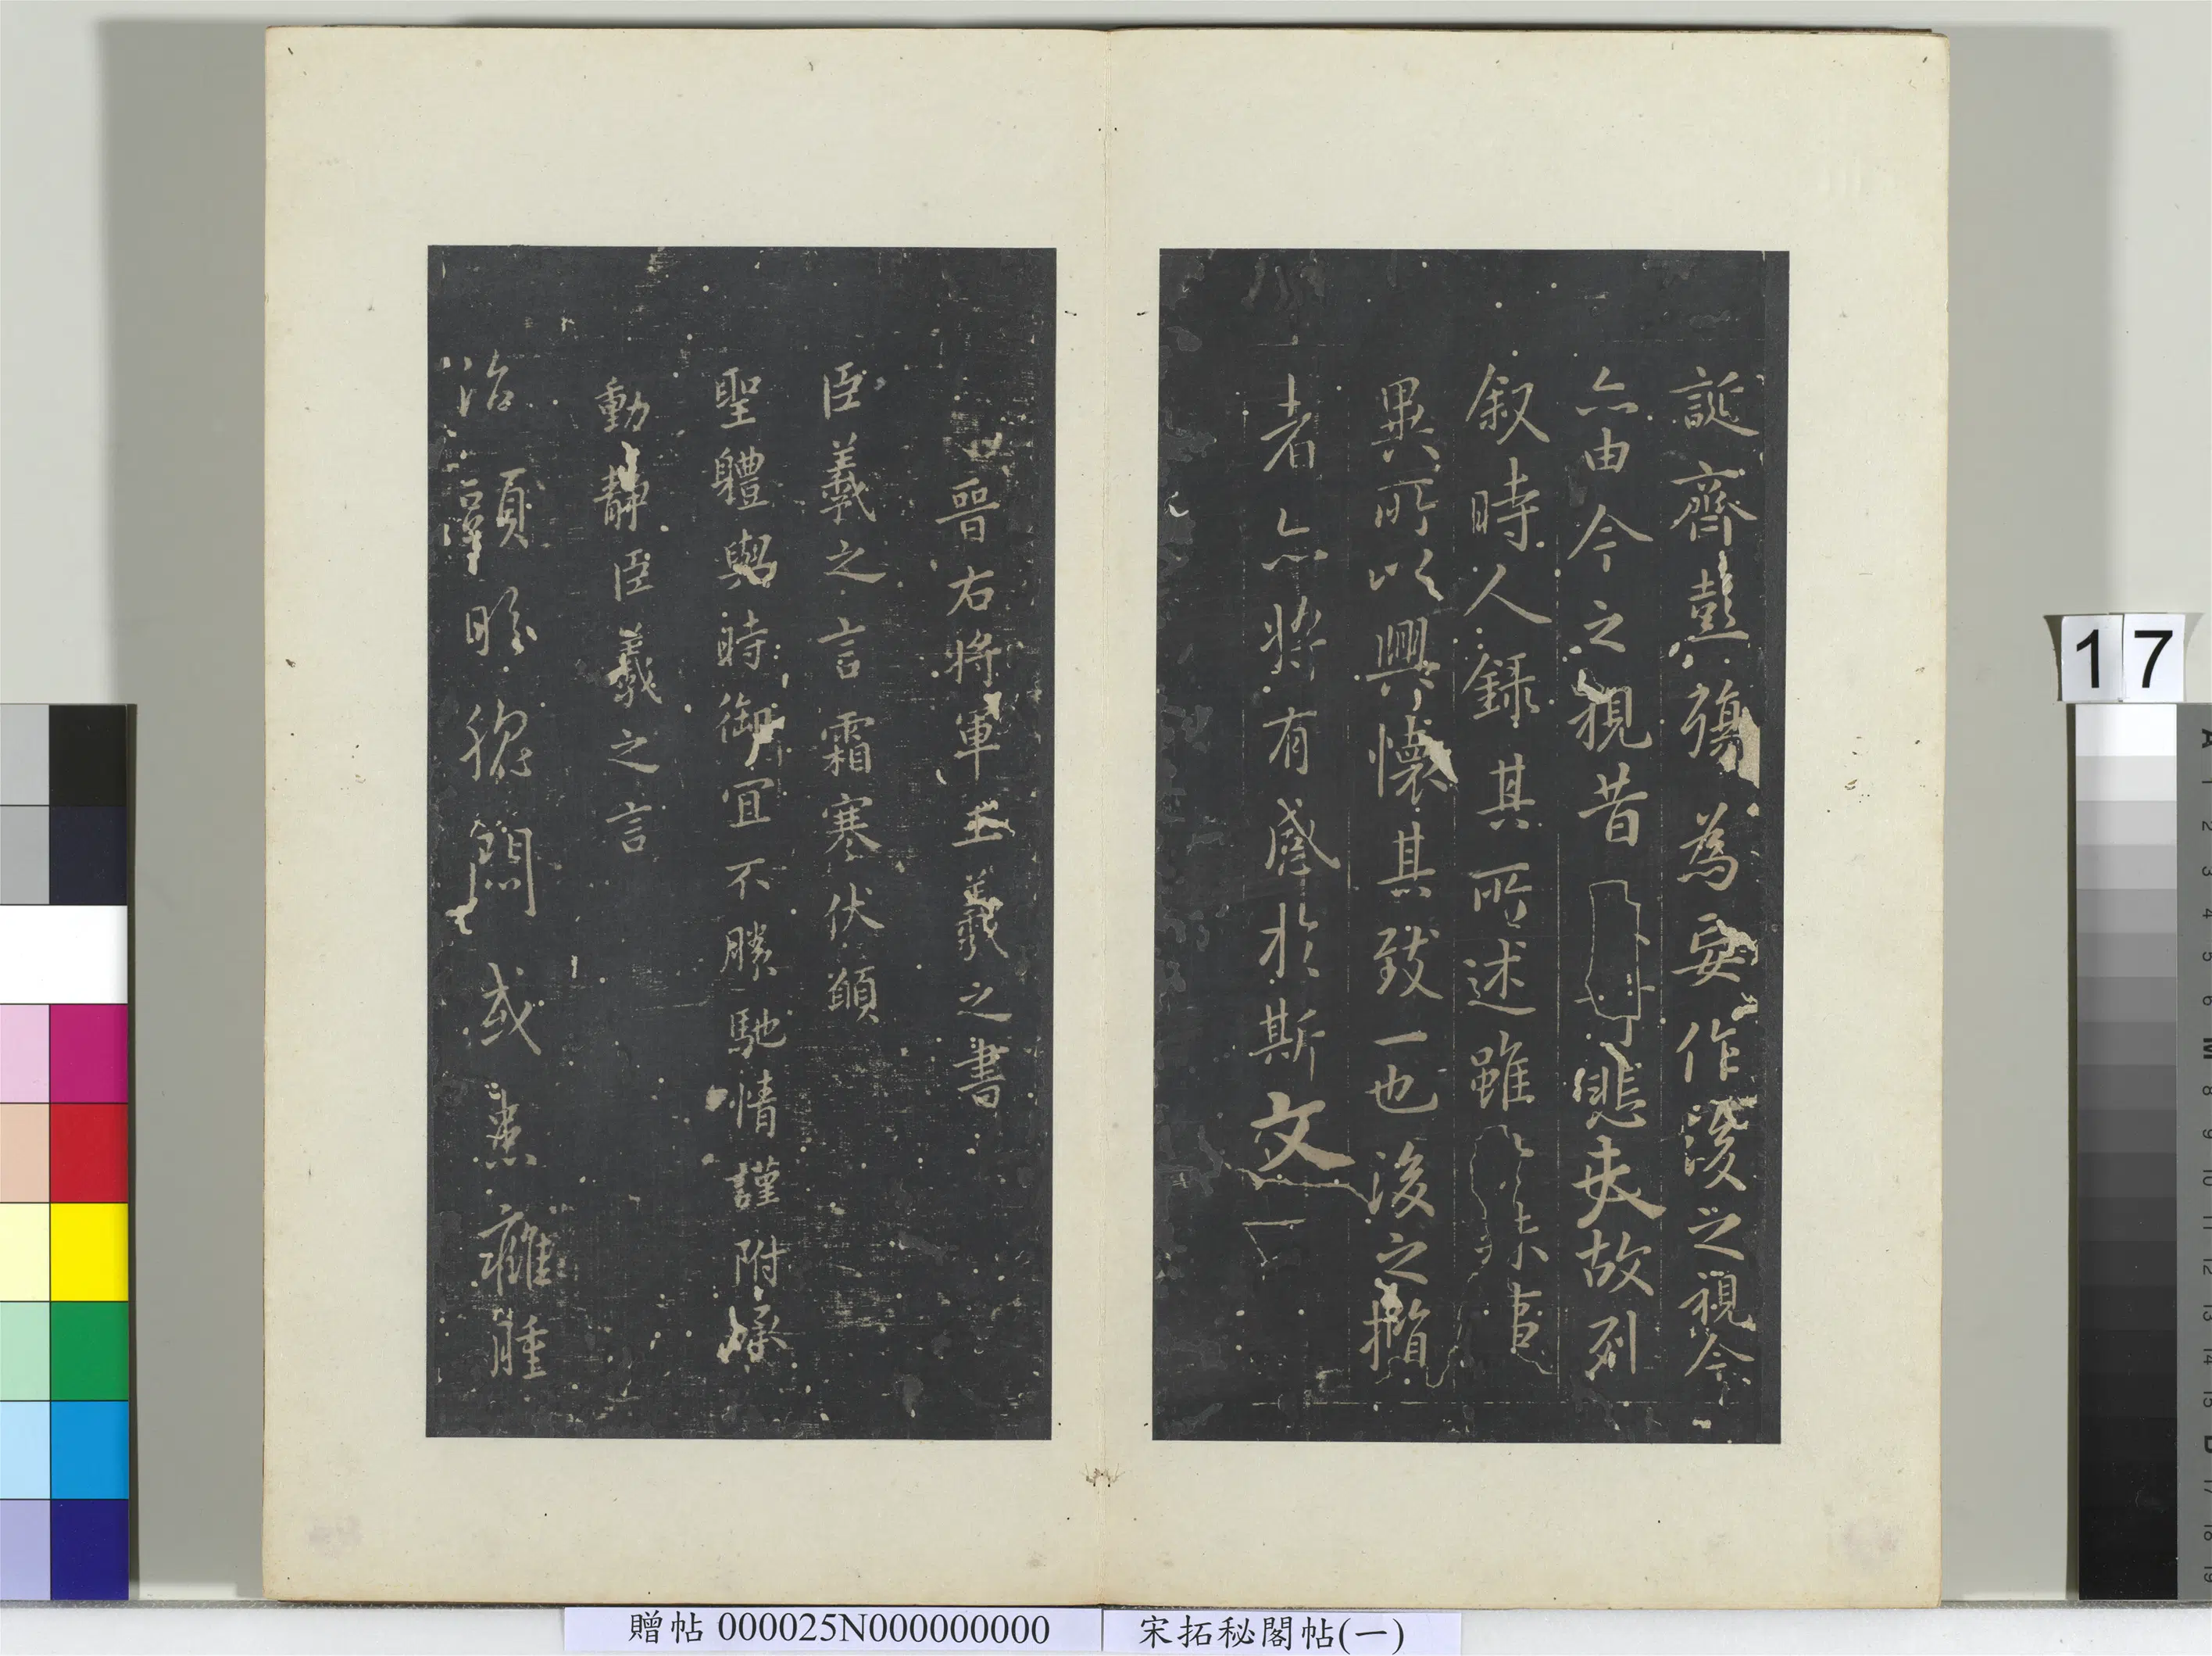 誕齊彭殤為妄作後之視今
亦由今之視昔悲夫故列
叙時人錄其所述雖世殊事
異所以興懷其致一也後之攬
者亦將有感於斯文
晉右將軍王羲之書
臣羲之言霜寒伏願
聖體與時御宜不勝馳情謹附承
動靜臣羲之言
治頭眩悶或患癰腫
17
贈帖 000025N000000000
宋拓秘閣帖(一)